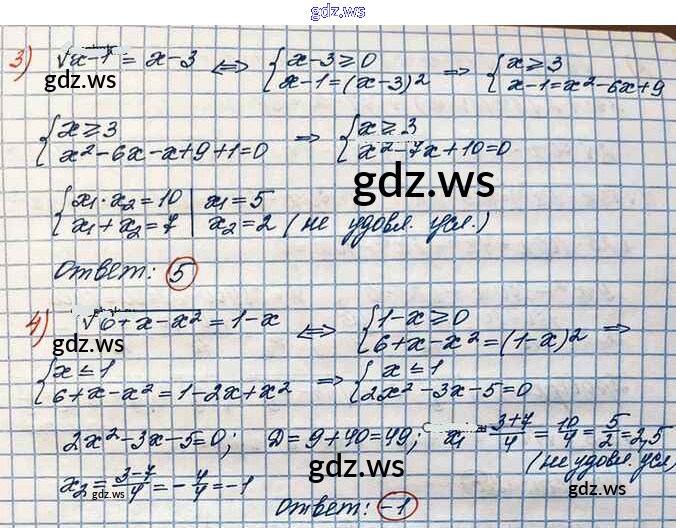 gdz.ws
3) √x-1 = x-3 <=> {x-3≥0 x-1=(x-3)² => {x≥3 x-1=x²-6x+9
gdz.ws
{x≥3 x²-6x-x+9+1=0 => {x≥3 x²-7x+10=0
gdz.ws
{x₁·x₂=10 x₁+x₂=7 | x₁=5 x₂=2 (не удовл. усл.)
Ответ: 5
4) √6+x-x² = 1-x <=> {1-x≥0 6+x-x²=(1-x)² =>
gdz.ws
{x≤1 6+x-x²=1-2x+x² => {x≤1 2x²-3x-5=0
2x²-3x-5=0; D=9+40=49; x₁=3+7/4=10/4=5/2=2,5
(не удовл. усл)
gdz.ws
x₂=3-7/4=-4/4=-1
gdz.ws
gdz.ws
Ответ: -1